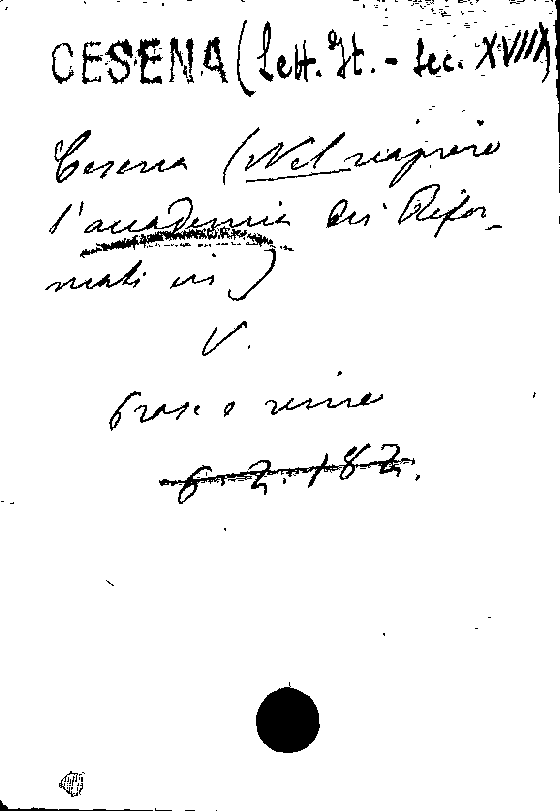 CESENA (Lett. It. - Sec. XVIII)
Cesena (Nel riaprirsi
l'accademia dei Rifor-
mati in)
V.
Prose e rime
6.2.182.